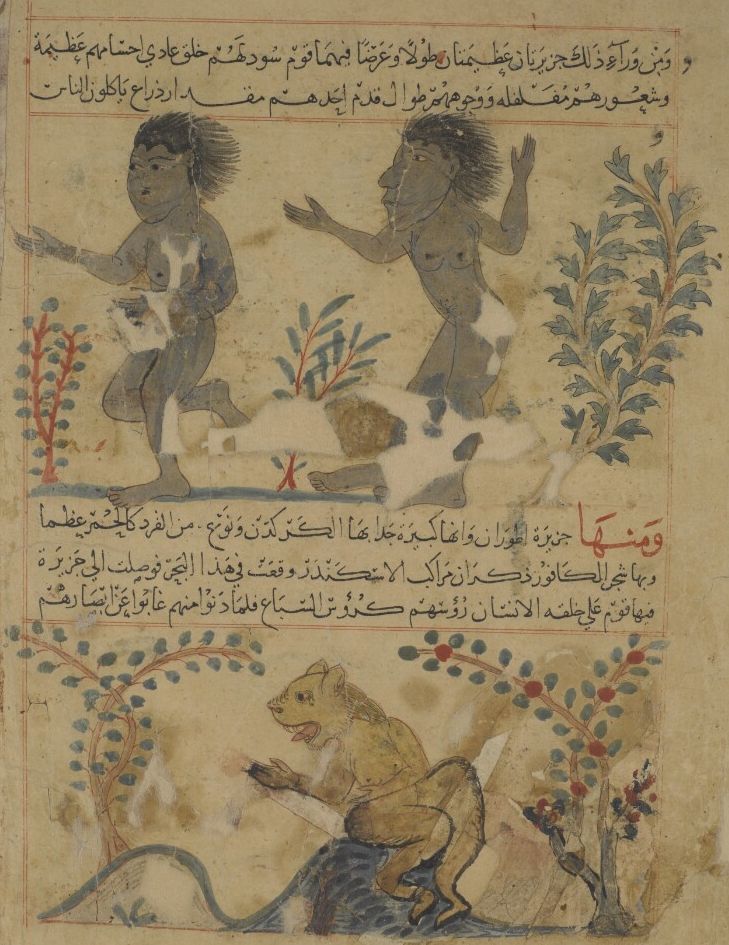 ومن ورآء ذلك جزيرتان عظيمتان طولًا وعرضًا فيهما قوم سود لهم خلق عادي اجسامهم عظيمة
وشعورهم مفلفله ووجوههم طوال قدم احدهم مقدار ذراع ياكلون الناس
ومنها جزيرة اطوران وانها كبيرة جدا بها الكركدن ونوع من القرد كالحمر عظما
وبها شجر الكافور ذكر ان مراكب الاسكندر وقعت في هذا البحر فوصلت الي جزيرة
فيها قوم علي خلقه الانسان رؤسهم كرؤس السباع فلما دنوا منهم غابوا عن ابصارهم